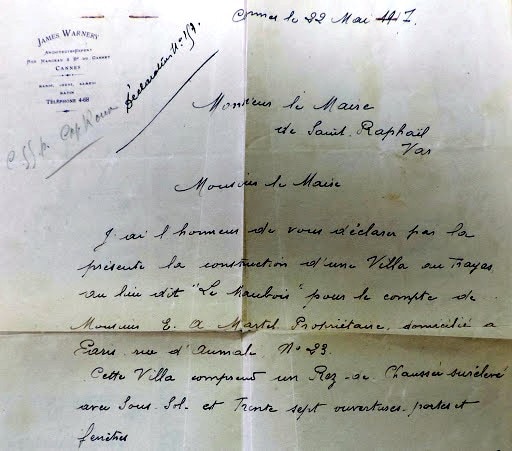 JAMES WARNERY
ARCHITECTE-EXPERT
RUE MARCEAU & Bd DU CANNET
CANNES
MARDI, JEUDI, SAMEDI
MATIN
TÉLÉPHONE 4-68
Déclaration No 157.
Cap Roux
Cannes le 22 Mai
Monsieur le Maire
de Saint-Raphaël
Var
Monsieur le Maire
J'ai l'honneur de vous déclarer par la
présente la construction d'une Villa au Trayas
au lieu dit "Le Maubois" pour le compte de
Monsieur E. A Martel. Propriétaire. domicilié a
Paris. rue d'Aumale No 23.
Cette Villa comprend un Rez-de-Chaussée surélevé
avec Sous-Sol. et Trente sept ouvertures. portes et
fenêtres